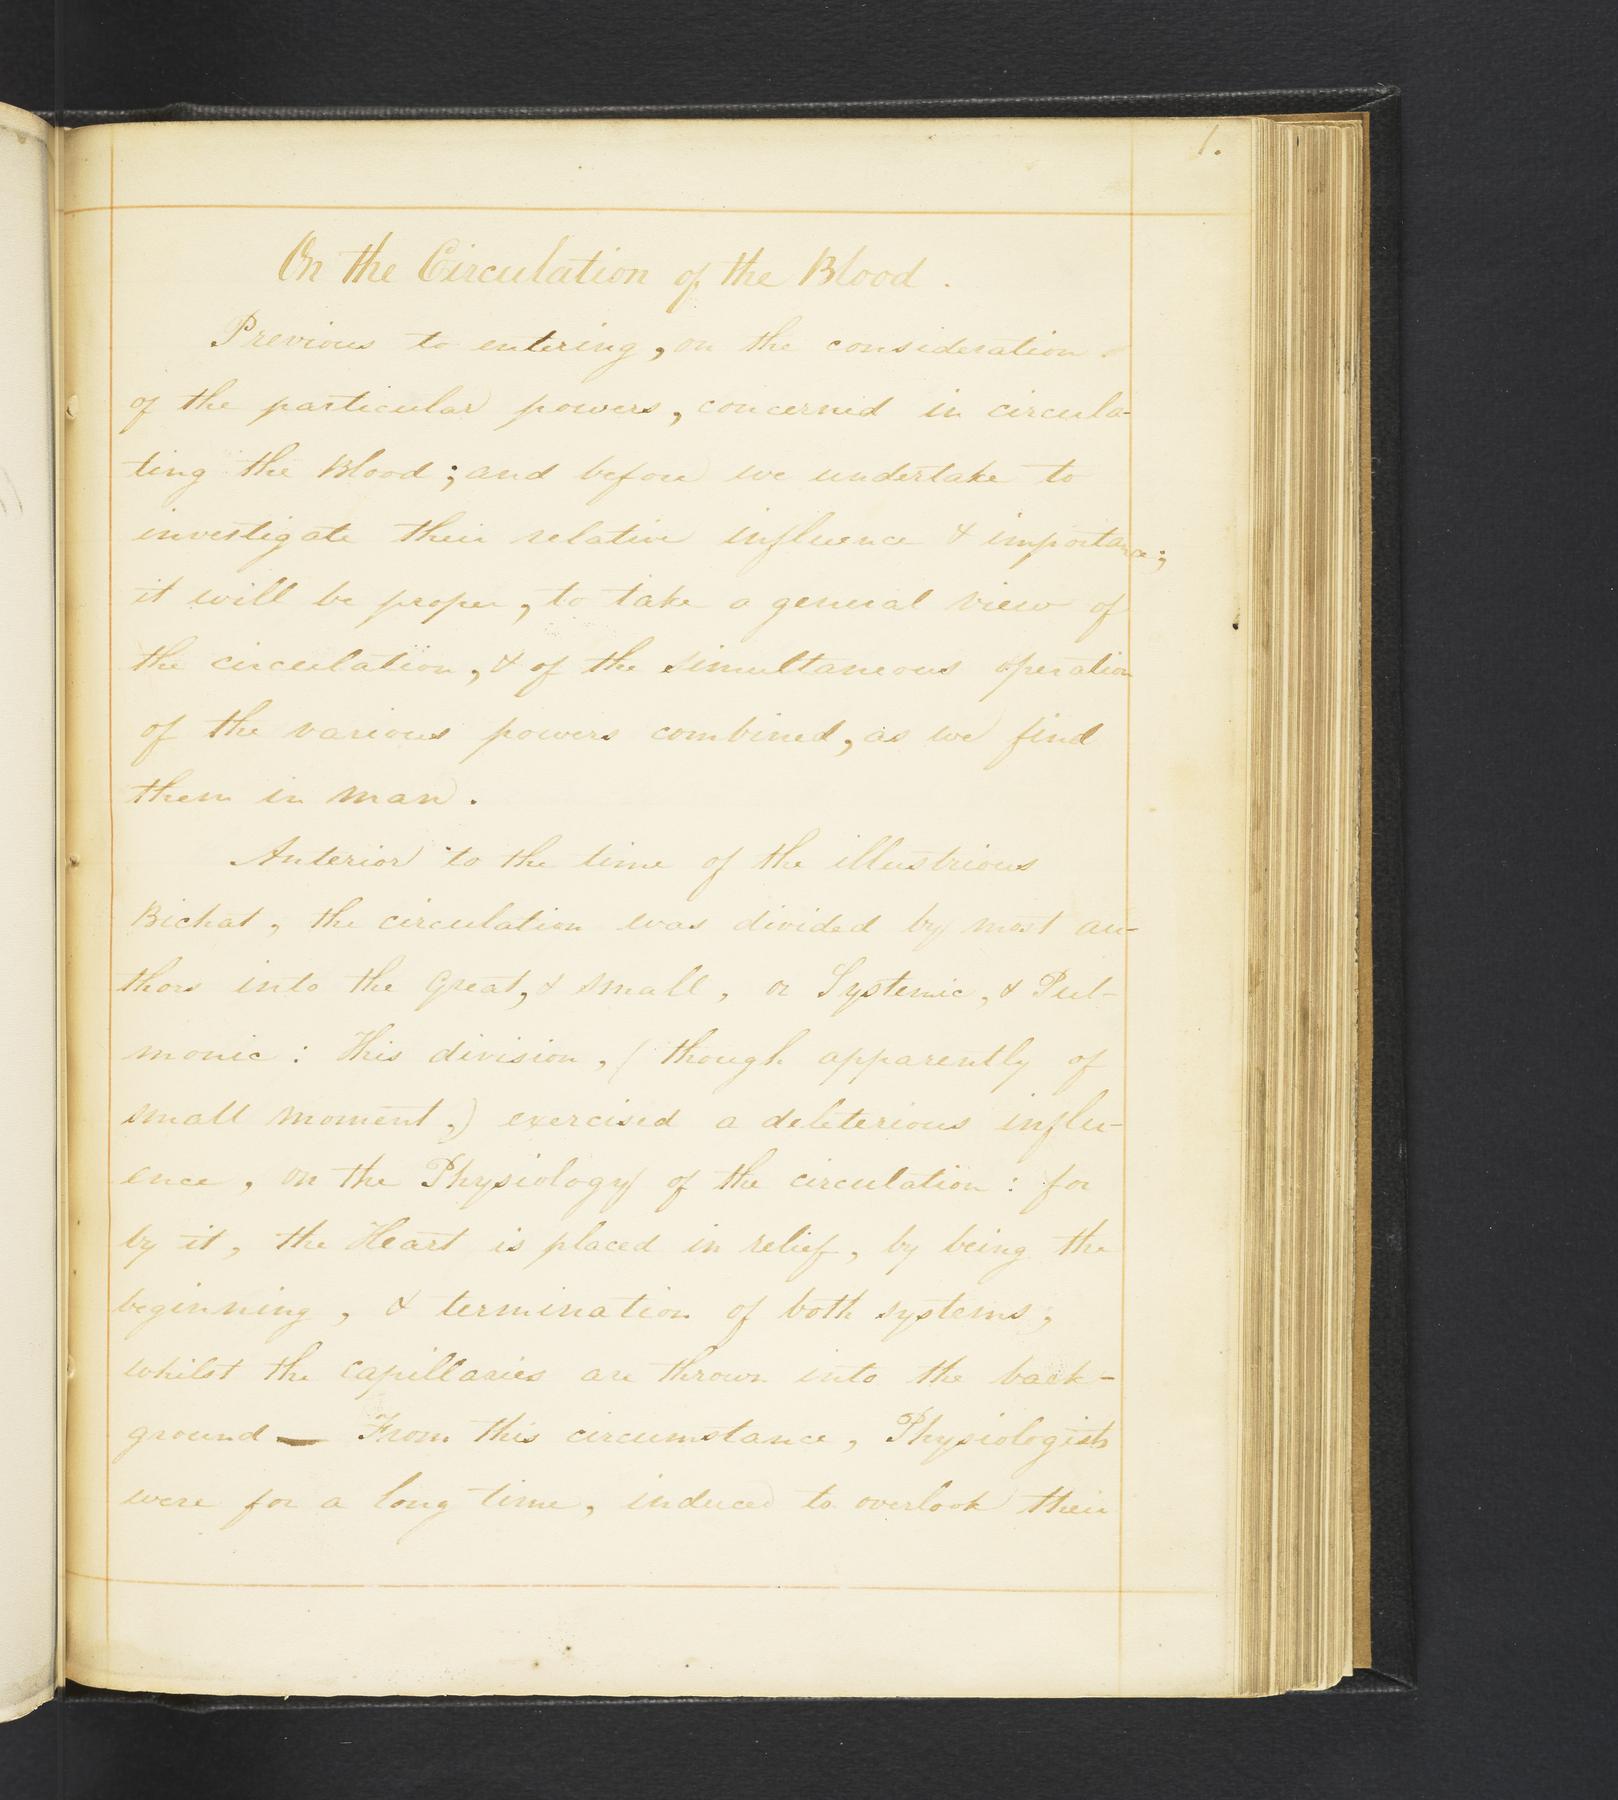 1.
On the Circulation of the Blood.
Previous to entering, on the consideration
of the particular powers, concerned in circula-
ting the Blood; and before we undertake to
investigate their relative influence & importance;
it will be proper, to take a general view of
the circulation, & of the simultaneous operation
of the various powers combined, as we find
them in man.
Anterior to the time of the illustrious
Bichat, the circulation was divided by most au-
thors into the Great, & small, or Systemic, & Pul-
monic: This division, (though apparently of
small moment,) exercised a deleterious influ-
ence, on the Physiology of the circulation: for
by it, the Heart is placed in relief, by being the
beginning, & termination of both systems;
whilst the capillaries are thrown into the back-
ground — From this circumstance, Physiologists
were for a long time, induced to overlook their